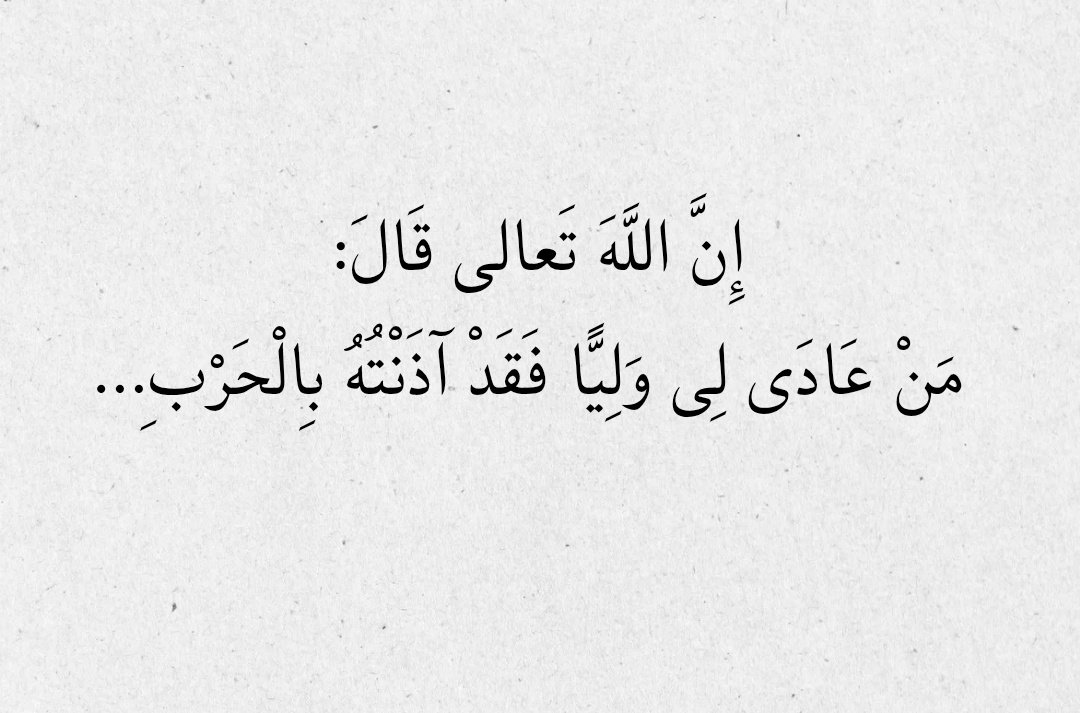 إِنَّ اللَّهَ تَعالى قَالَ:
مَنْ عَادَى لِى وَلِيًّا فَقَدْ آذَنْتُهُ بِالْحَرْبِ...